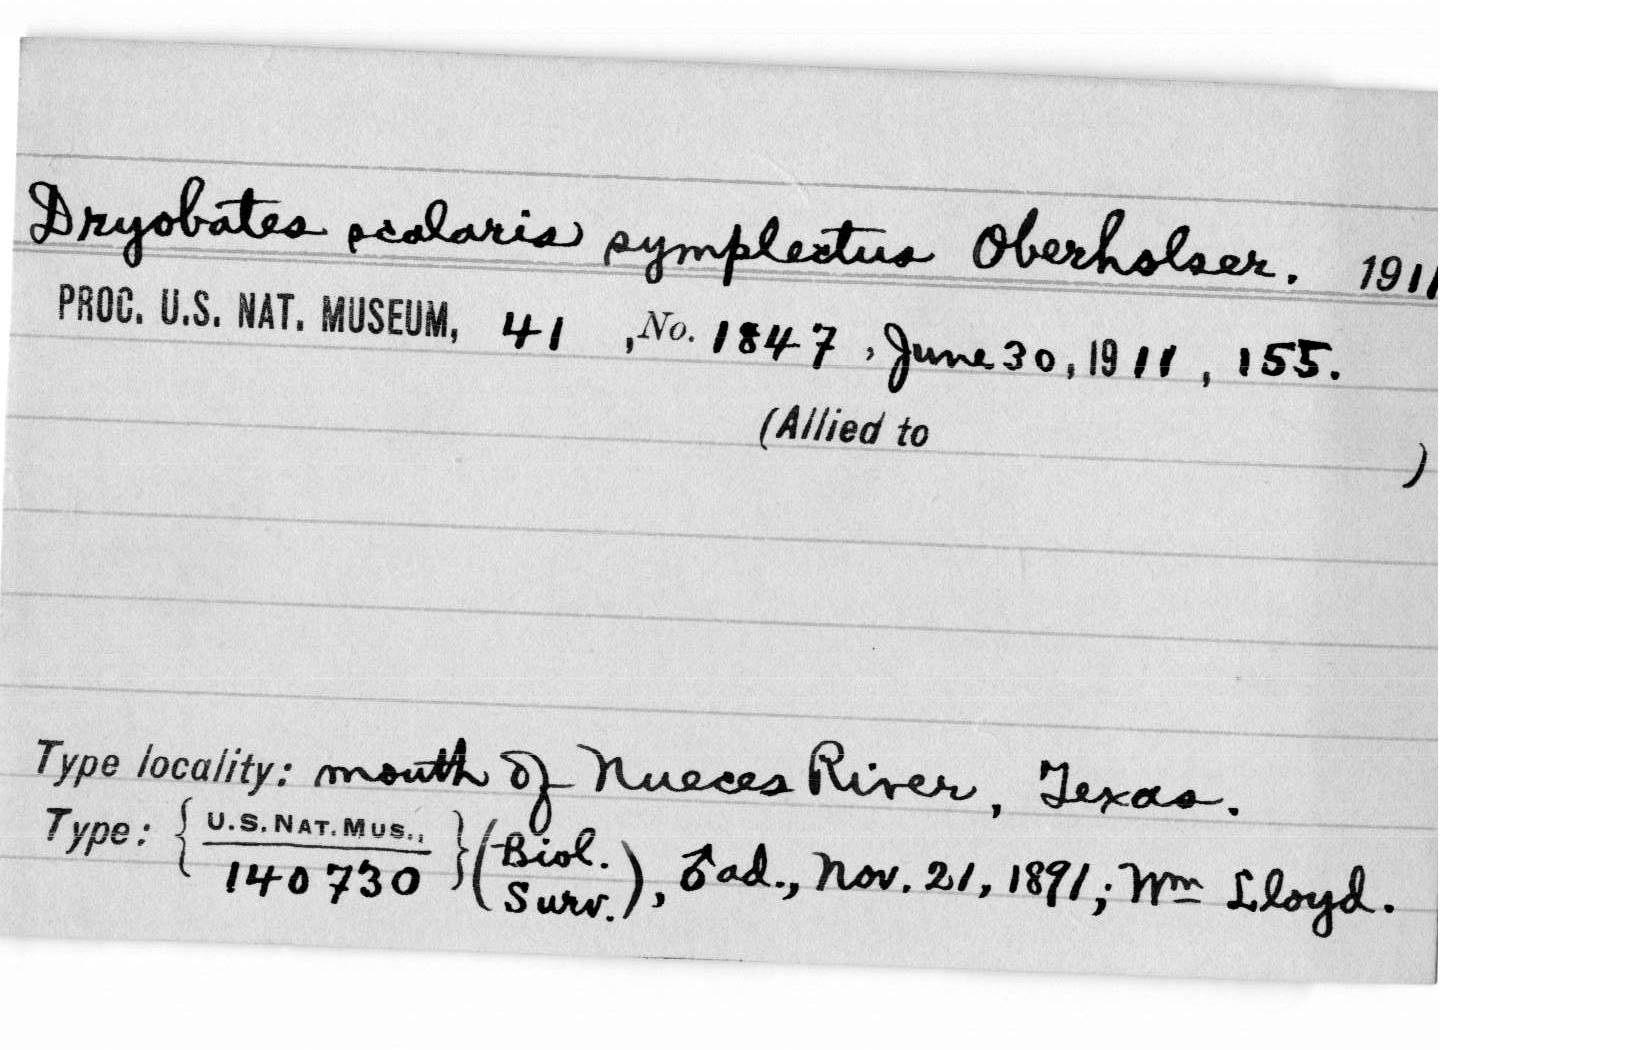 Dryobates scalaris symplectus Oberholser. 1911
PROC. U.S. NAT. MUSEUM, 41 , No. 1847 , June 30, 1911 , 155.
(Allied to )
Type locality: mouth of Nueces River, Texas.
Type: { U.S. NAT. MUS., } (Biol.
140730 Surv.), ♂ ad., Nov. 21, 1891; Wm Lloyd.